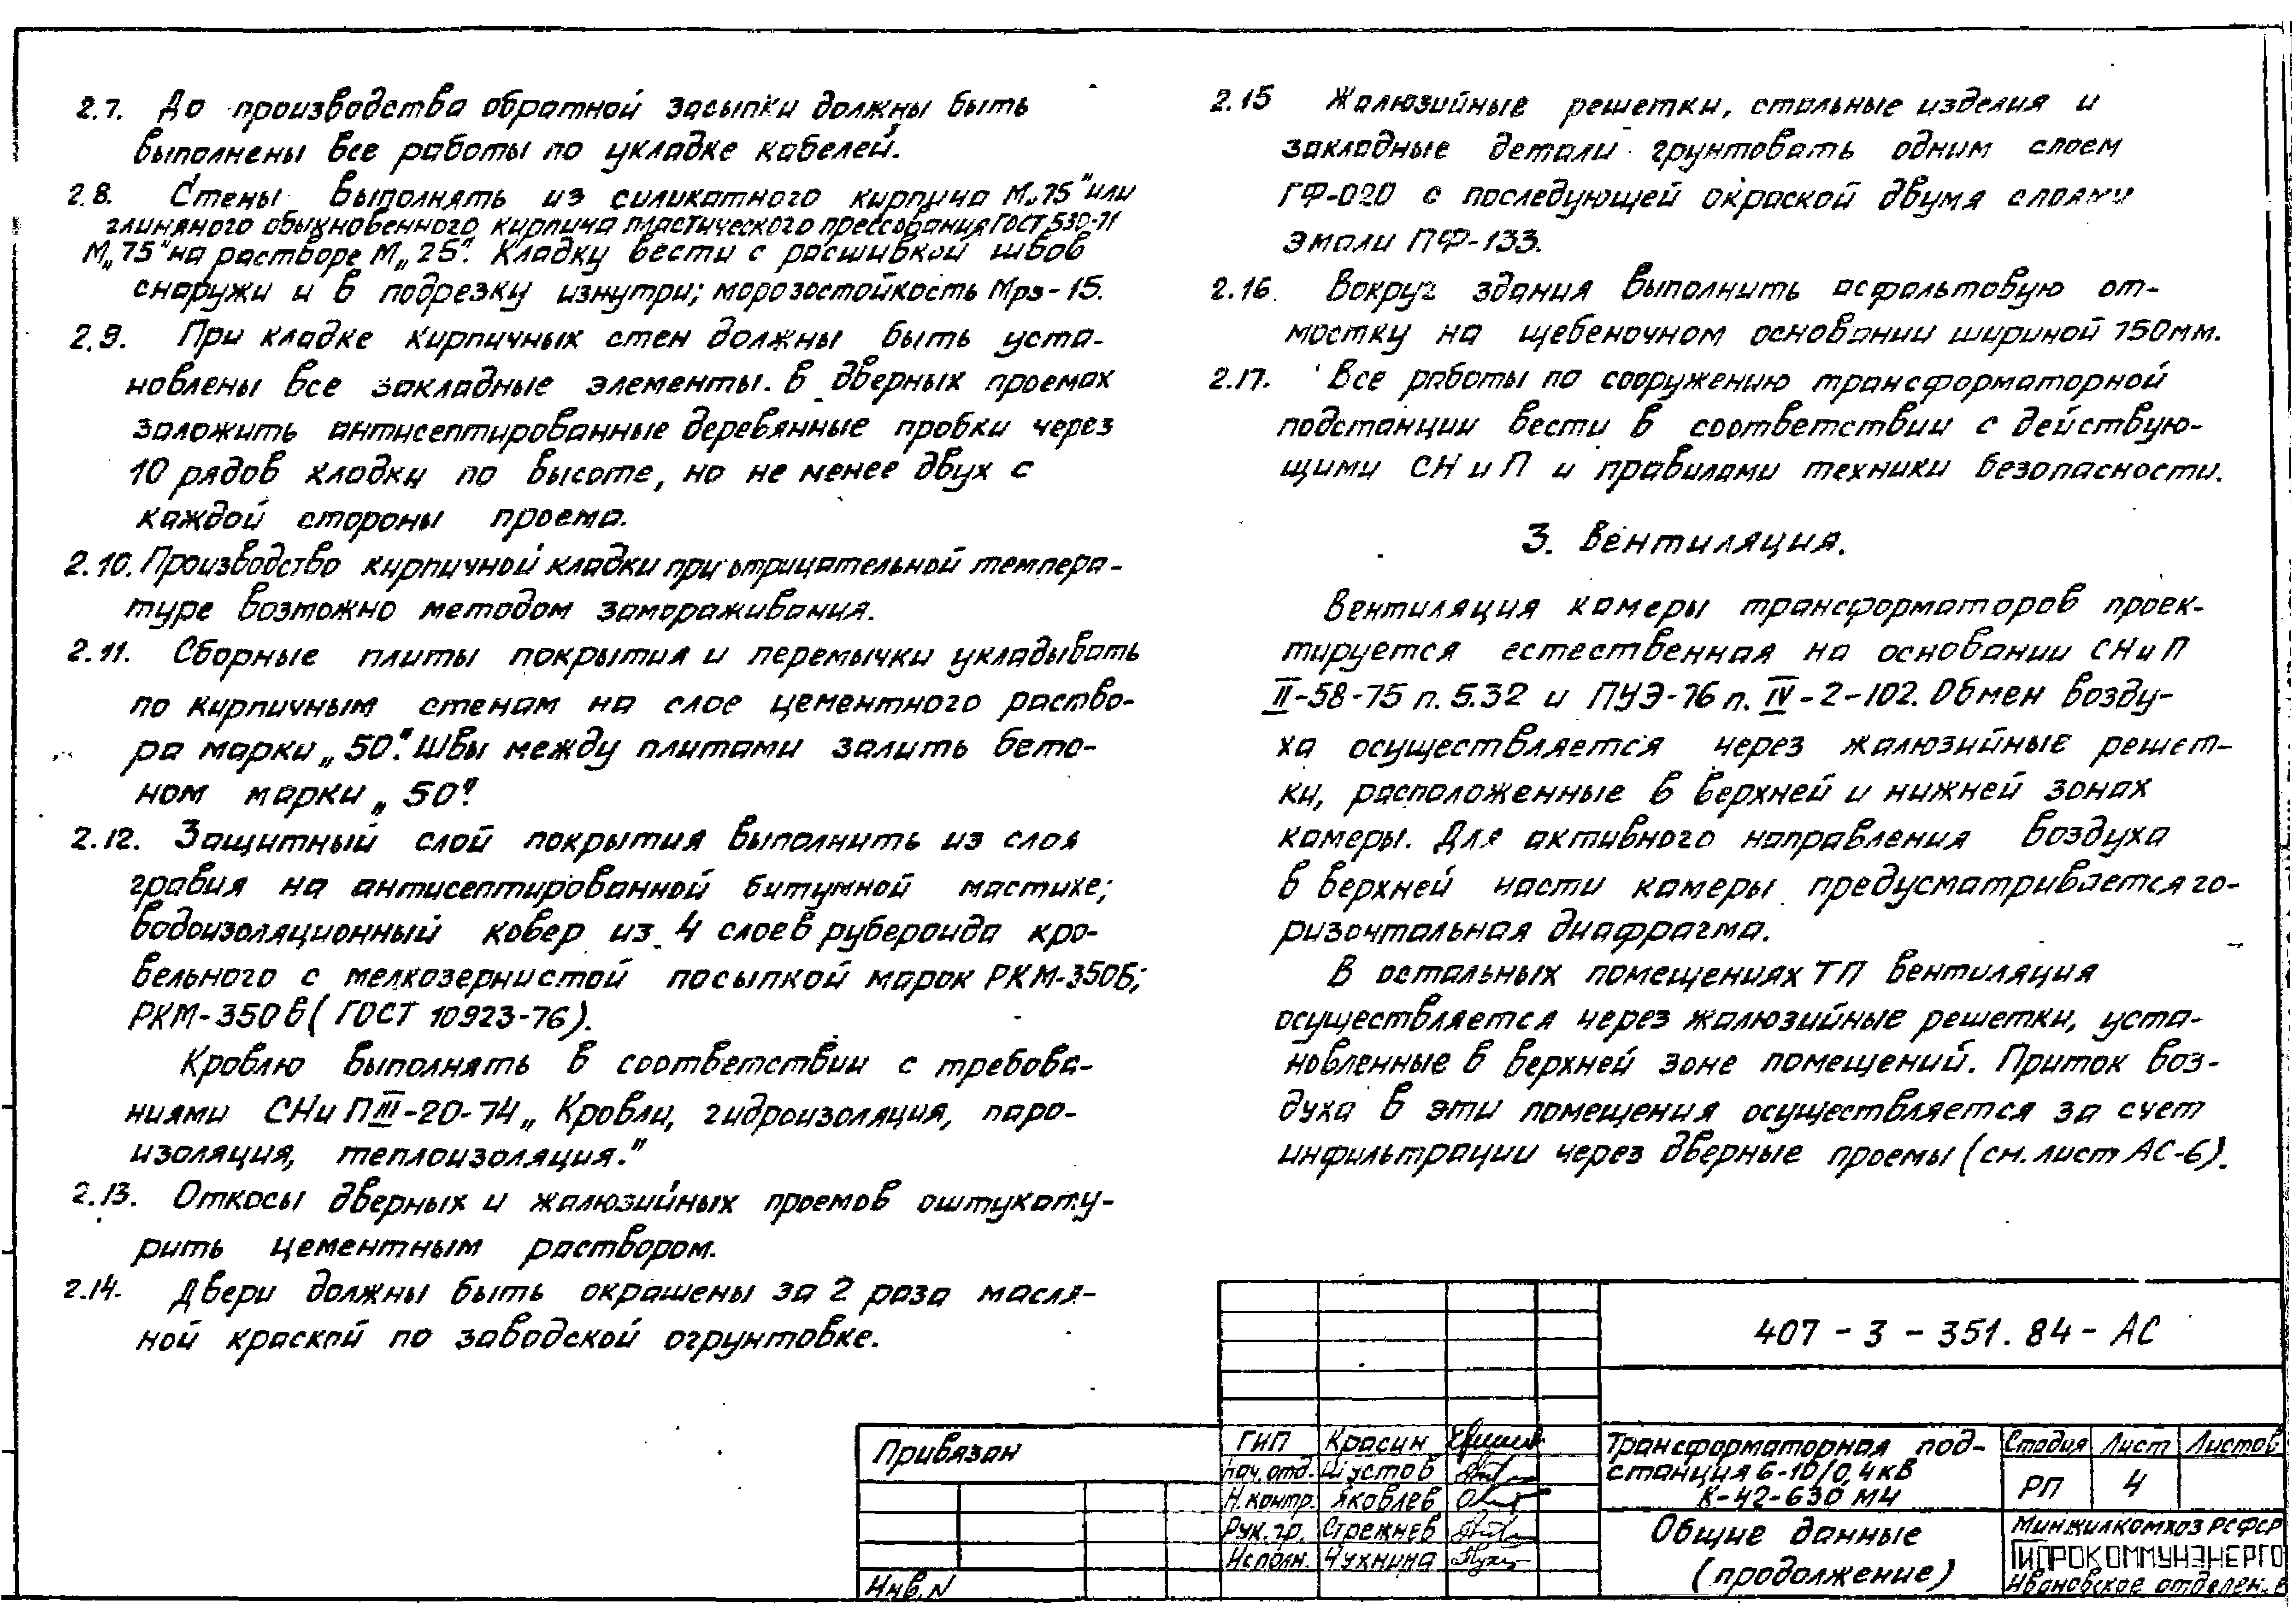 2.7. До производства обратной засыпки должны быть
выполнены все работы по укладке кабелей.
2.8. Стены выполнять из силикатного кирпича М„75" или
глиняного обыкновенного кирпича пластического прессования ГОСТ 530-71
М„75" на растворе М„25". Кладку вести с расшивкой швов
снаружи и в подрезку изнутри; морозостойкость Мрз-15.
2.9. При кладке кирпичных стен должны быть уста-
новлены все закладные элементы. В дверных проемах
заложить антисептированные деревянные пробки через
10 рядов кладки по высоте, но не менее двух с
каждой стороны проема.
2.10. Производство кирпичной кладки при отрицательной темпера-
туре возможно методом замораживания.
2.11. Сборные плиты покрытия и перемычки укладывать
по кирпичным стенам на слое цементного раство-
ра марки „50". Швы между плитами залить бето-
ном марки „50".
2.12. Защитный слой покрытия выполнить из слоя
гравия на антисептированной битумной мастике;
водоизоляционный ковер из 4 слоев рубероида кро-
вельного с мелкозернистой посыпкой марок РКМ-350Б;
РКМ-350В (ГОСТ 10923-76).
Кровлю выполнять в соответствии с требова-
ниями СНиП III-20-74 „Кровли, гидроизоляция, паро-
изоляция, теплоизоляция."
2.13. Откосы дверных и жалюзийных проемов оштукату-
рить цементным раствором.
2.14. Двери должны быть окрашены за 2 раза масля-
ной краской по заводской огрунтовке.
2.15 Жалюзийные решетки, стальные изделия и
закладные детали грунтовать одним слоем
ГФ-020 с последующей окраской двумя слоями
эмали ПФ-133.
2.16. Вокруг здания выполнить асфальтовую от-
мостку на щебеночном основании шириной 750мм.
2.17. Все работы по сооружению трансформаторной
подстанции вести в соответствии с действую-
щими СНиП и правилами техники безопасности.
3. Вентиляция.
Вентиляция камеры трансформаторов проек-
тируется естественная на основании СНиП
II-58-75 п. 5.32 и ПУЭ-76 п. IV-2-102. Обмен возду-
ха осуществляется через жалюзийные решет-
ки, расположенные в верхней и нижней зонах
камеры. Для активного направления воздуха
в верхней части камеры предусматривается го-
ризонтальная диафрагма.
В остальных помещениях ТП вентиляция
осуществляется через жалюзийные решетки, уста-
новленные в верхней зоне помещений. Приток воз-
духа в эти помещения осуществляется за счет
инфильтрации через дверные проемы (см. лист АС-6).
407-3-351.84-АС
Привязан
Инв. N
ГИП Красин
Нач. отд. Шустов
Н. контр. Яковлев
Рук. гр. Стрежнев
Исполн. Чухнина
Трансформаторная под-
станция 6-10/0,4 кВ
К-42-630 М4
Стадия Лист Листов
РП 4
Общие данные
(продолжение)
Минжилкомхоз РСФСР
ГИПРОКОММУНЭНЕРГО
Ивановское отделен.